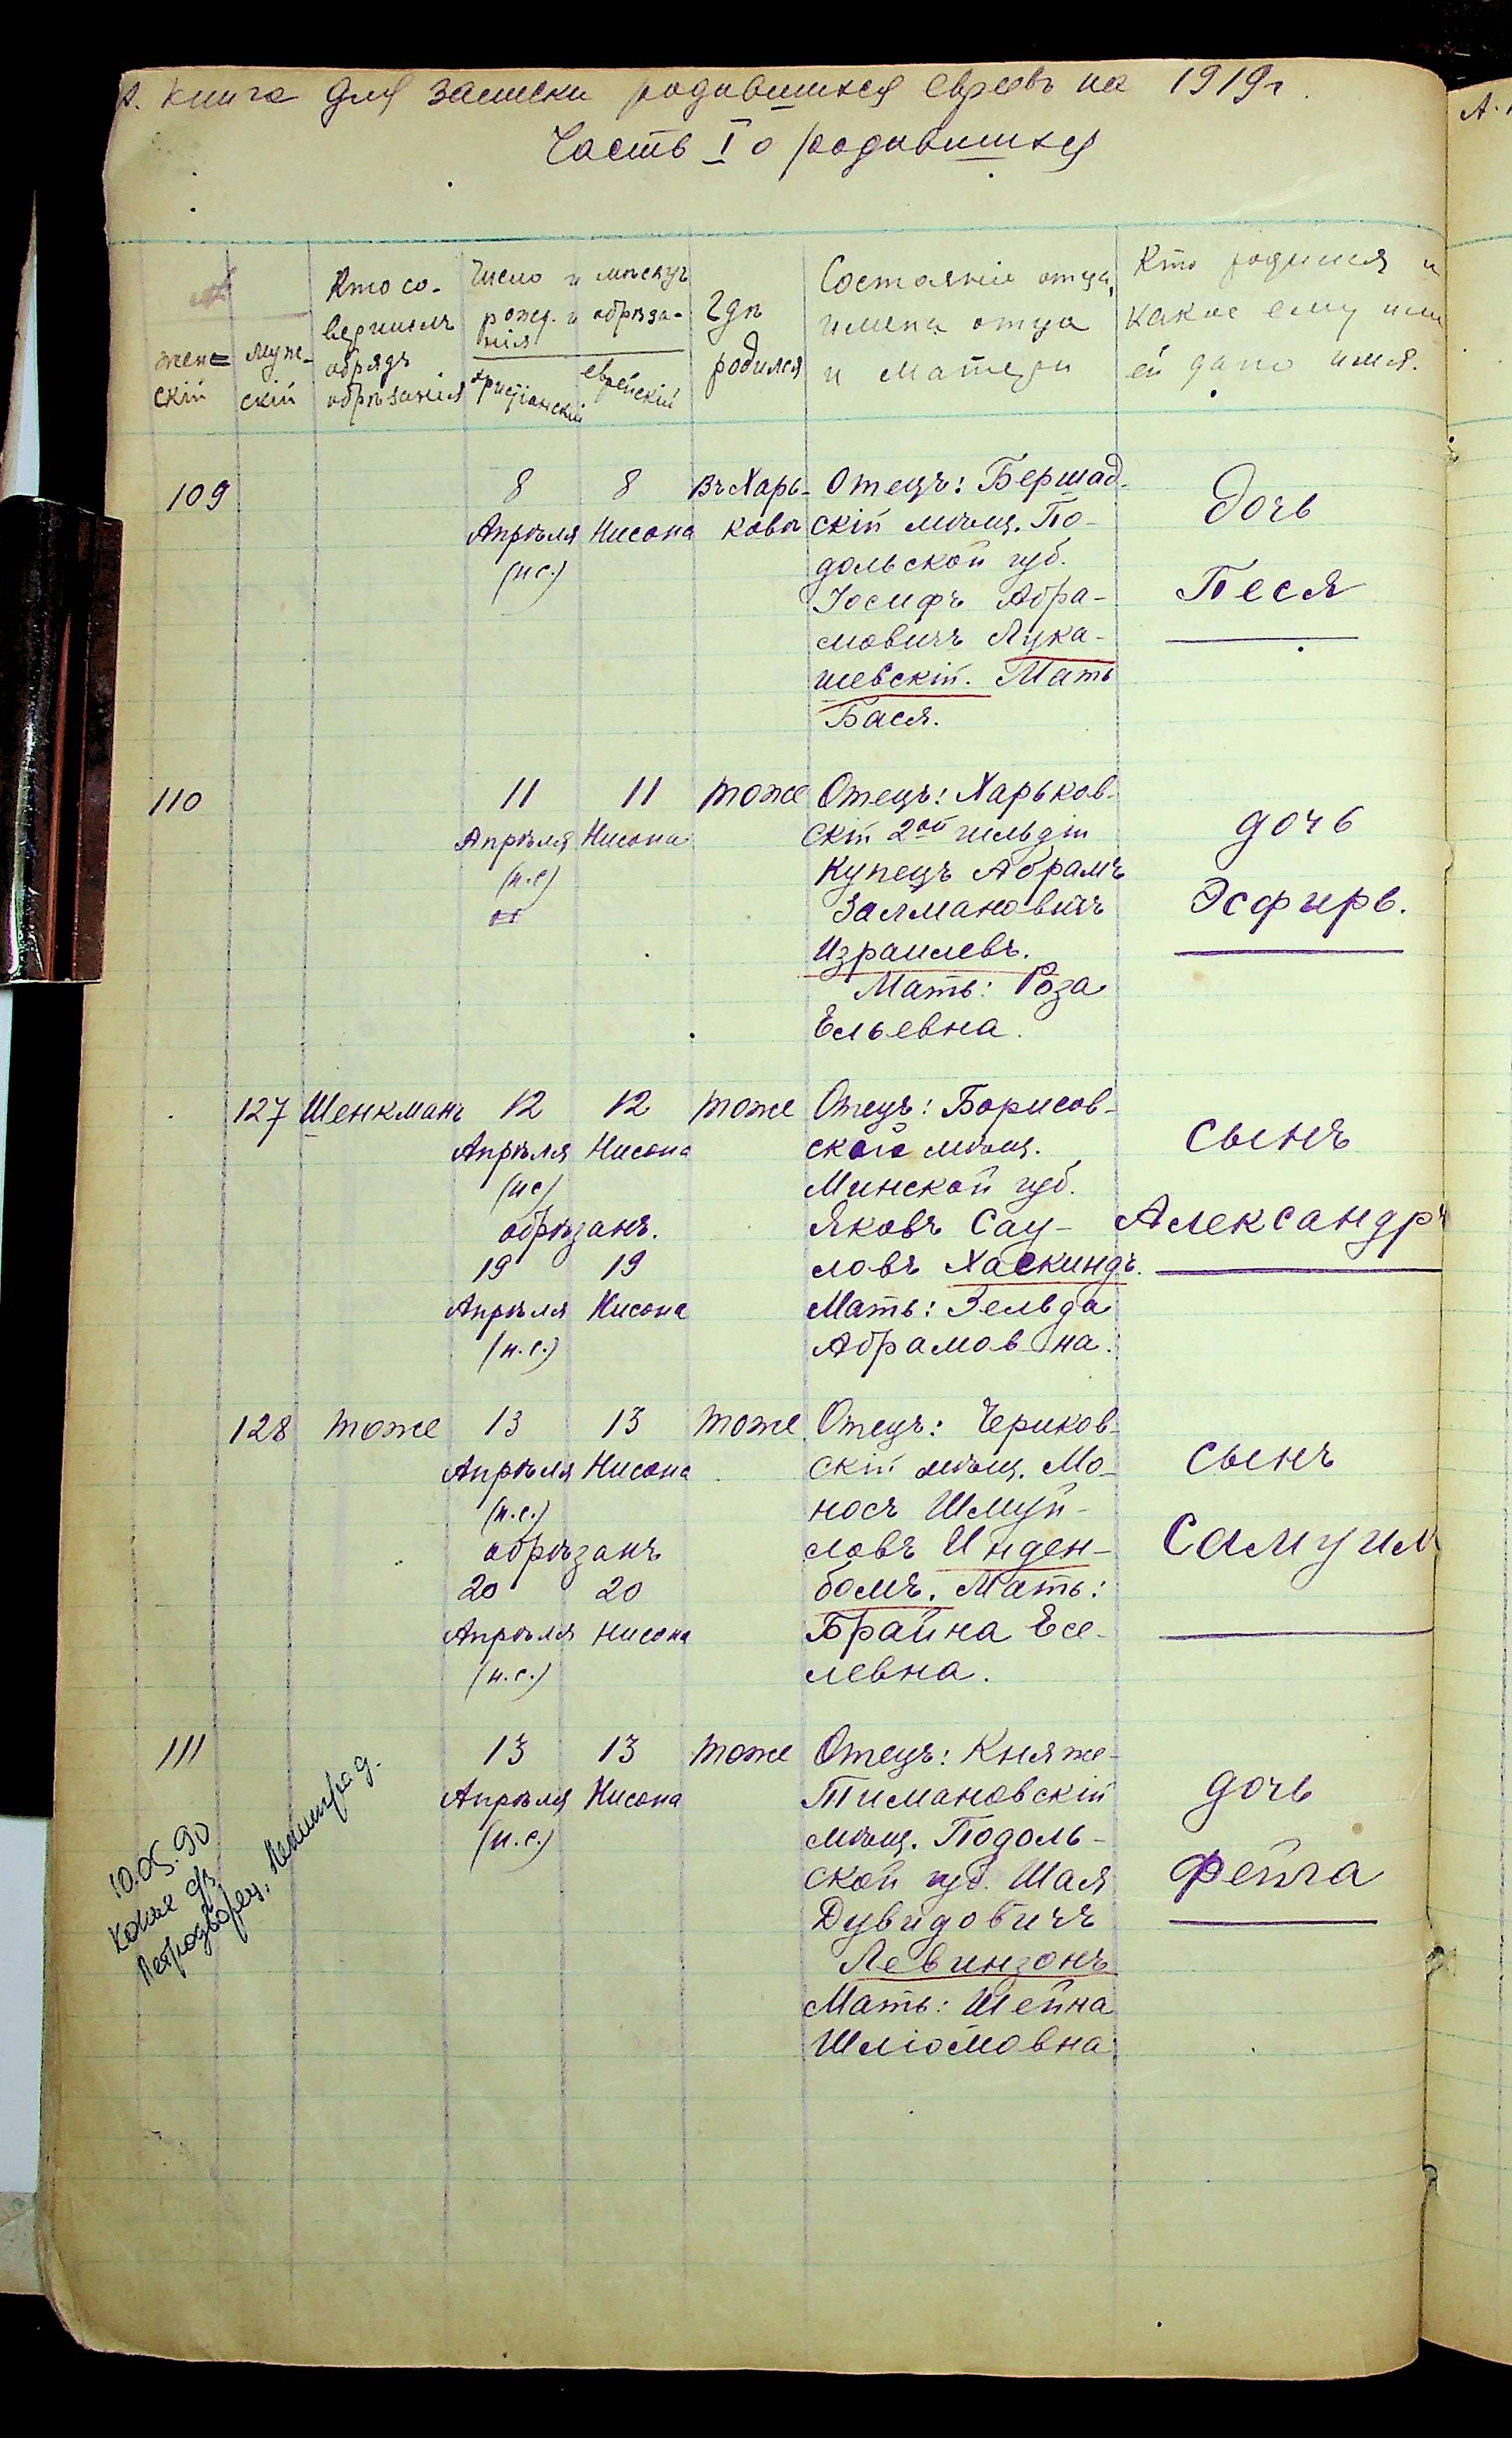 А. Книга для записки родившихся евреевъ на 1919г.
Часть I о родившихся
жен=
скій
муж-
скій
Кто со-
вершилъ
обрядъ
обрѣзанія
Число и мѣсяцъ
рожд. и обрѣза-
нія
христіанскій
еврейскій
Гдѣ
родился
Состояніе отца,
имена отца
и матери
Кто родился и
какое ему или
ей дано имя.
109
8
Апрѣля
(н с.)
8
Нисона
Въ Харь-
ковѣ
Отецъ: Бершад-
скій мѣщ. По-
дольской губ.
Іосифъ Абра-
мовичъ Лука-
шевскій. Мать
Бася.
дочь
Песя
110
11
Апрѣля
(н.с)
11
Нисона
тоже
Отецъ: Харьков-
скій 2ой гильдіи
Купецъ Абрамъ
Залмановичъ
Израилевъ.
Мать: Роза
Ельевна.
дочь
Эсфирь.
127
Шенкманъ
12
Апрѣля
(нс)
12
Нисона
обрѣзанъ.
19
Апрѣля
(н.с.)
19
Нисона
тоже
Отецъ: Борисов-
ской мѣщ.
Минской губ.
Яковъ Сау-
ловъ Хаскиндъ.
Мать: Зельда
Абрамовна.
сынъ
Александръ
128
тоже
13
Апрѣля
(н.с.)
13
Нисона
обрѣзанъ
20
Апрѣля
(н.с.)
20
Нисона
тоже
Отецъ: Чериков-
скій мѣщ. Мо-
носъ Шмуй-
ловъ Инден-
бомъ. Мать:
Брайна Есе-
левна.
сынъ
Самуил
111
10.05.90
Петродворец, Ленинград.
13
Апрѣля
(н.с.)
13
Нисона
тоже
Отецъ: Княже-
Тимановскій
мѣщ. Подоль-
ской губ. Шая
Дувидовичъ
Левинзонъ
Мать: Шейна
Шліомовна.
дочь
Фейга
А.